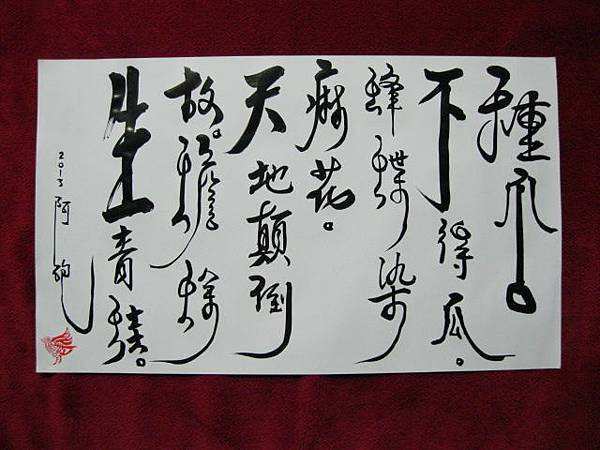 種瓜
不得瓜。
蜂蝶染
病花。
天地顛倒
故。
生青
2013 阿